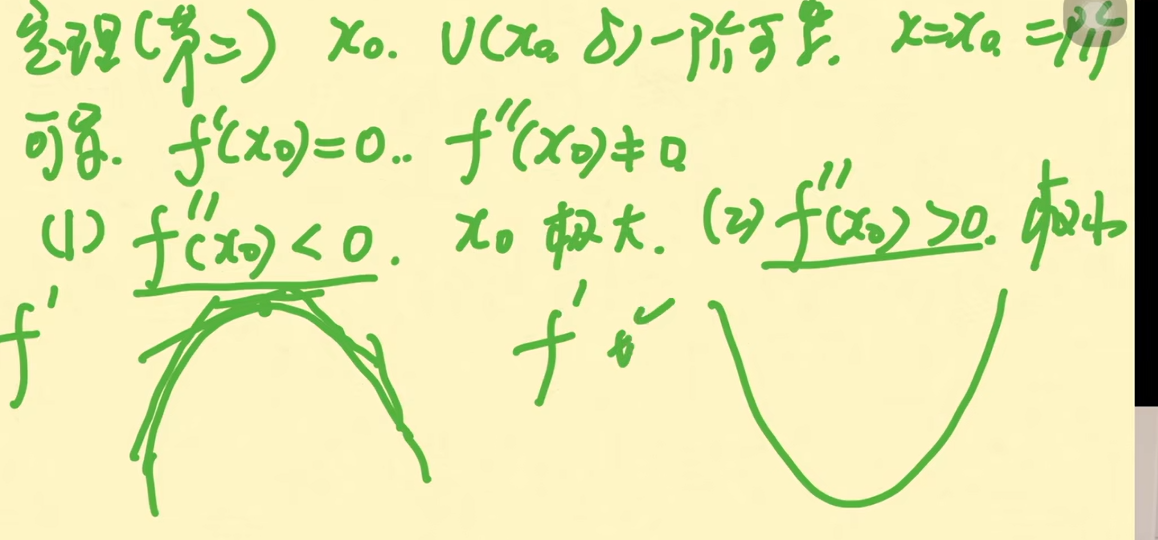 定理(第二) x₀. U(x₀ δ)一阶可导. x=x₀ 二阶
可导. f'(x₀)=0.. f''(x₀)≠0
(1) f''(x₀)<0. x₀ 极大. (2) f''(x₀)>0. 极小
f' f'